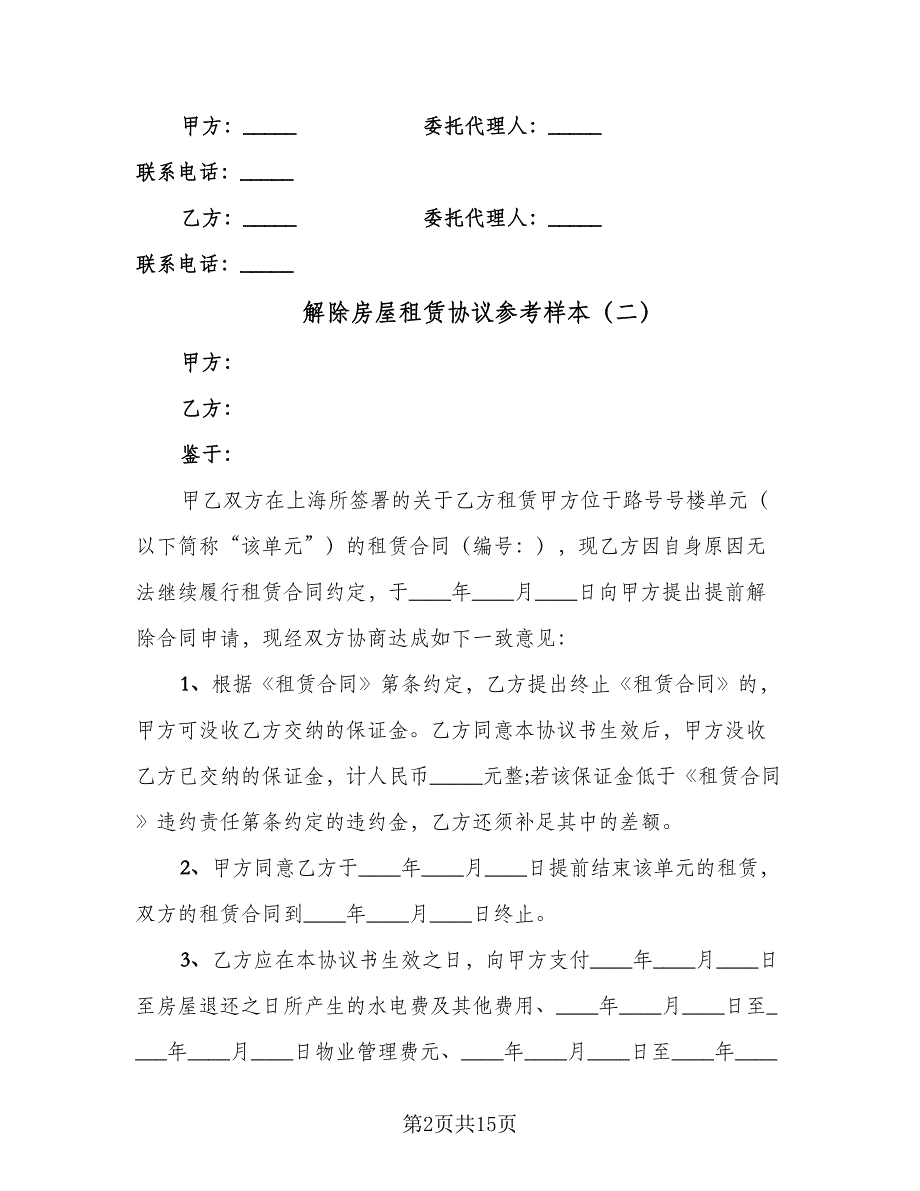 甲方：_____ 委托代理人：_____
联系电话：_____
乙方：_____ 委托代理人：_____
联系电话：_____
解除房屋租赁协议参考样本（二）
甲方：
乙方：
鉴于：
甲乙双方在上海所签署的关于乙方租赁甲方位于路号号楼单元（
以下简称“该单元”）的租赁合同（编号：），现乙方因自身原因无
法继续履行租赁合同约定，于____年____月____日向甲方提出提前解
除合同申请，现经双方协商达成如下一致意见：
1、根据《租赁合同》第条约定，乙方提出终止《租赁合同》的，
甲方可没收乙方交纳的保证金。乙方同意本协议书生效后，甲方没收
乙方已交纳的保证金，计人民币_____元整;若该保证金低于《租赁合同
》违约责任第条约定的违约金，乙方还须补足其中的差额。
2、甲方同意乙方于____年____月____日提前结束该单元的租赁，
双方的租赁合同到____年____月____日终止。
3、乙方应在本协议书生效之日，向甲方支付____年____月____日
至房屋退还之日所产生的水电费及其他费用、____年____月____日至_
___年____月____日物业管理费元、____年____月____日至____年____
第2页共15页